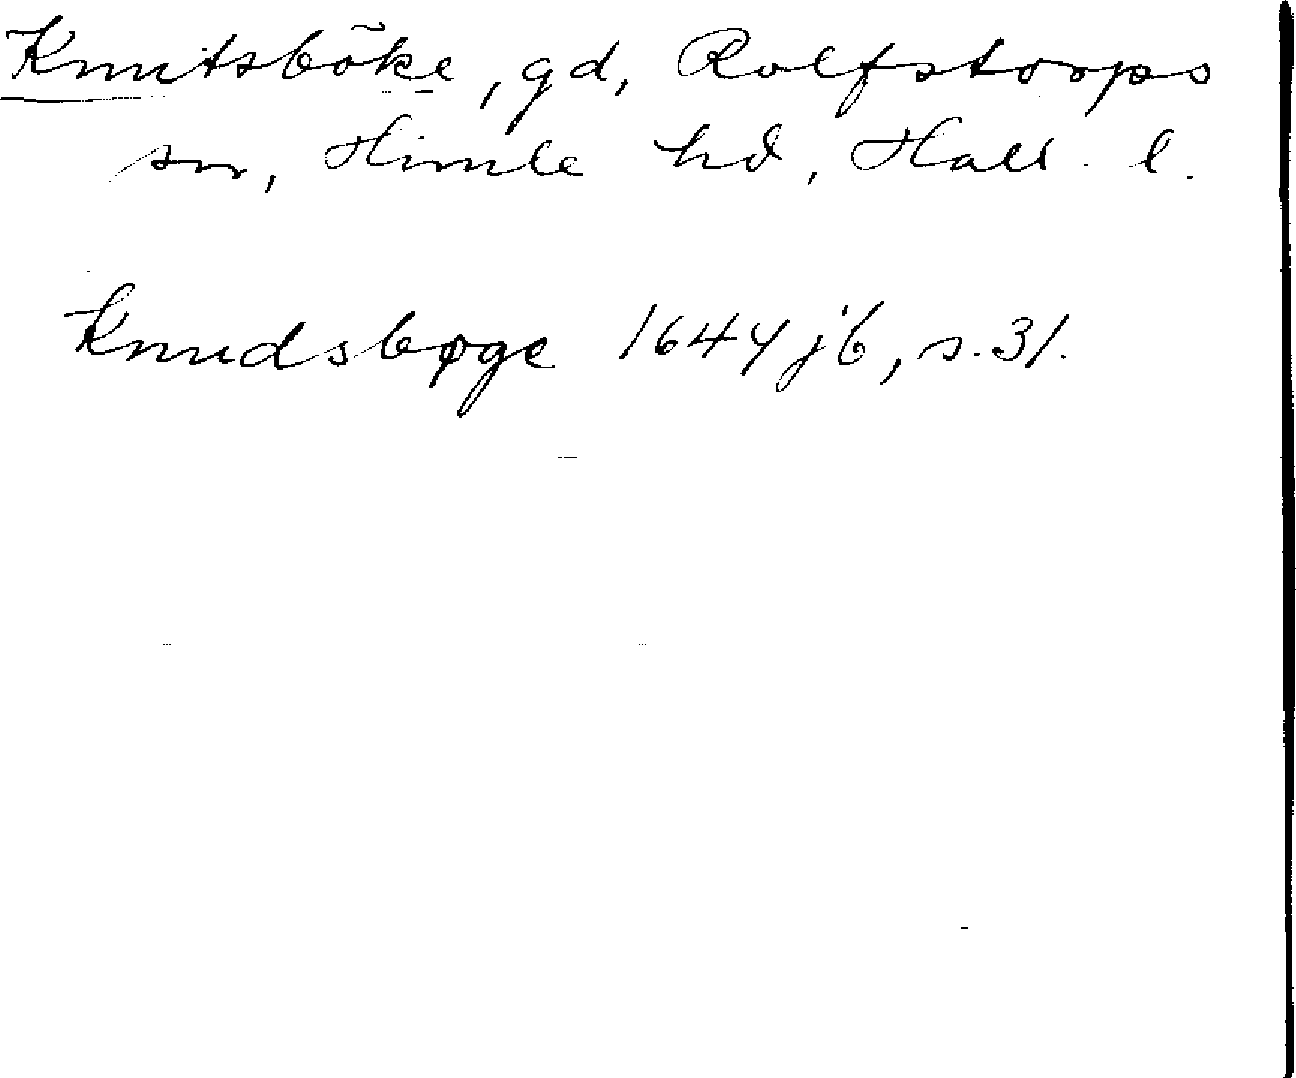 Knutsböke, gd, Rolfstorps
sn, Himle hd, Hall. l.
Knudsbøge 1644 jb, s. 31.